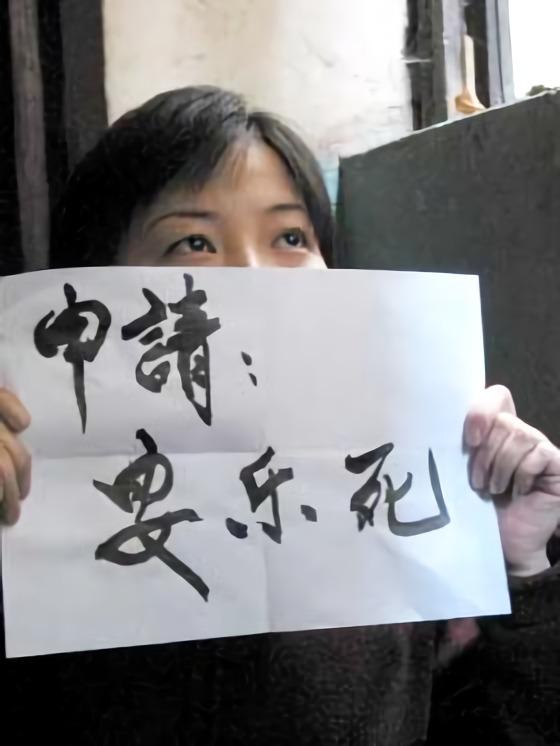 申請:
要乐死